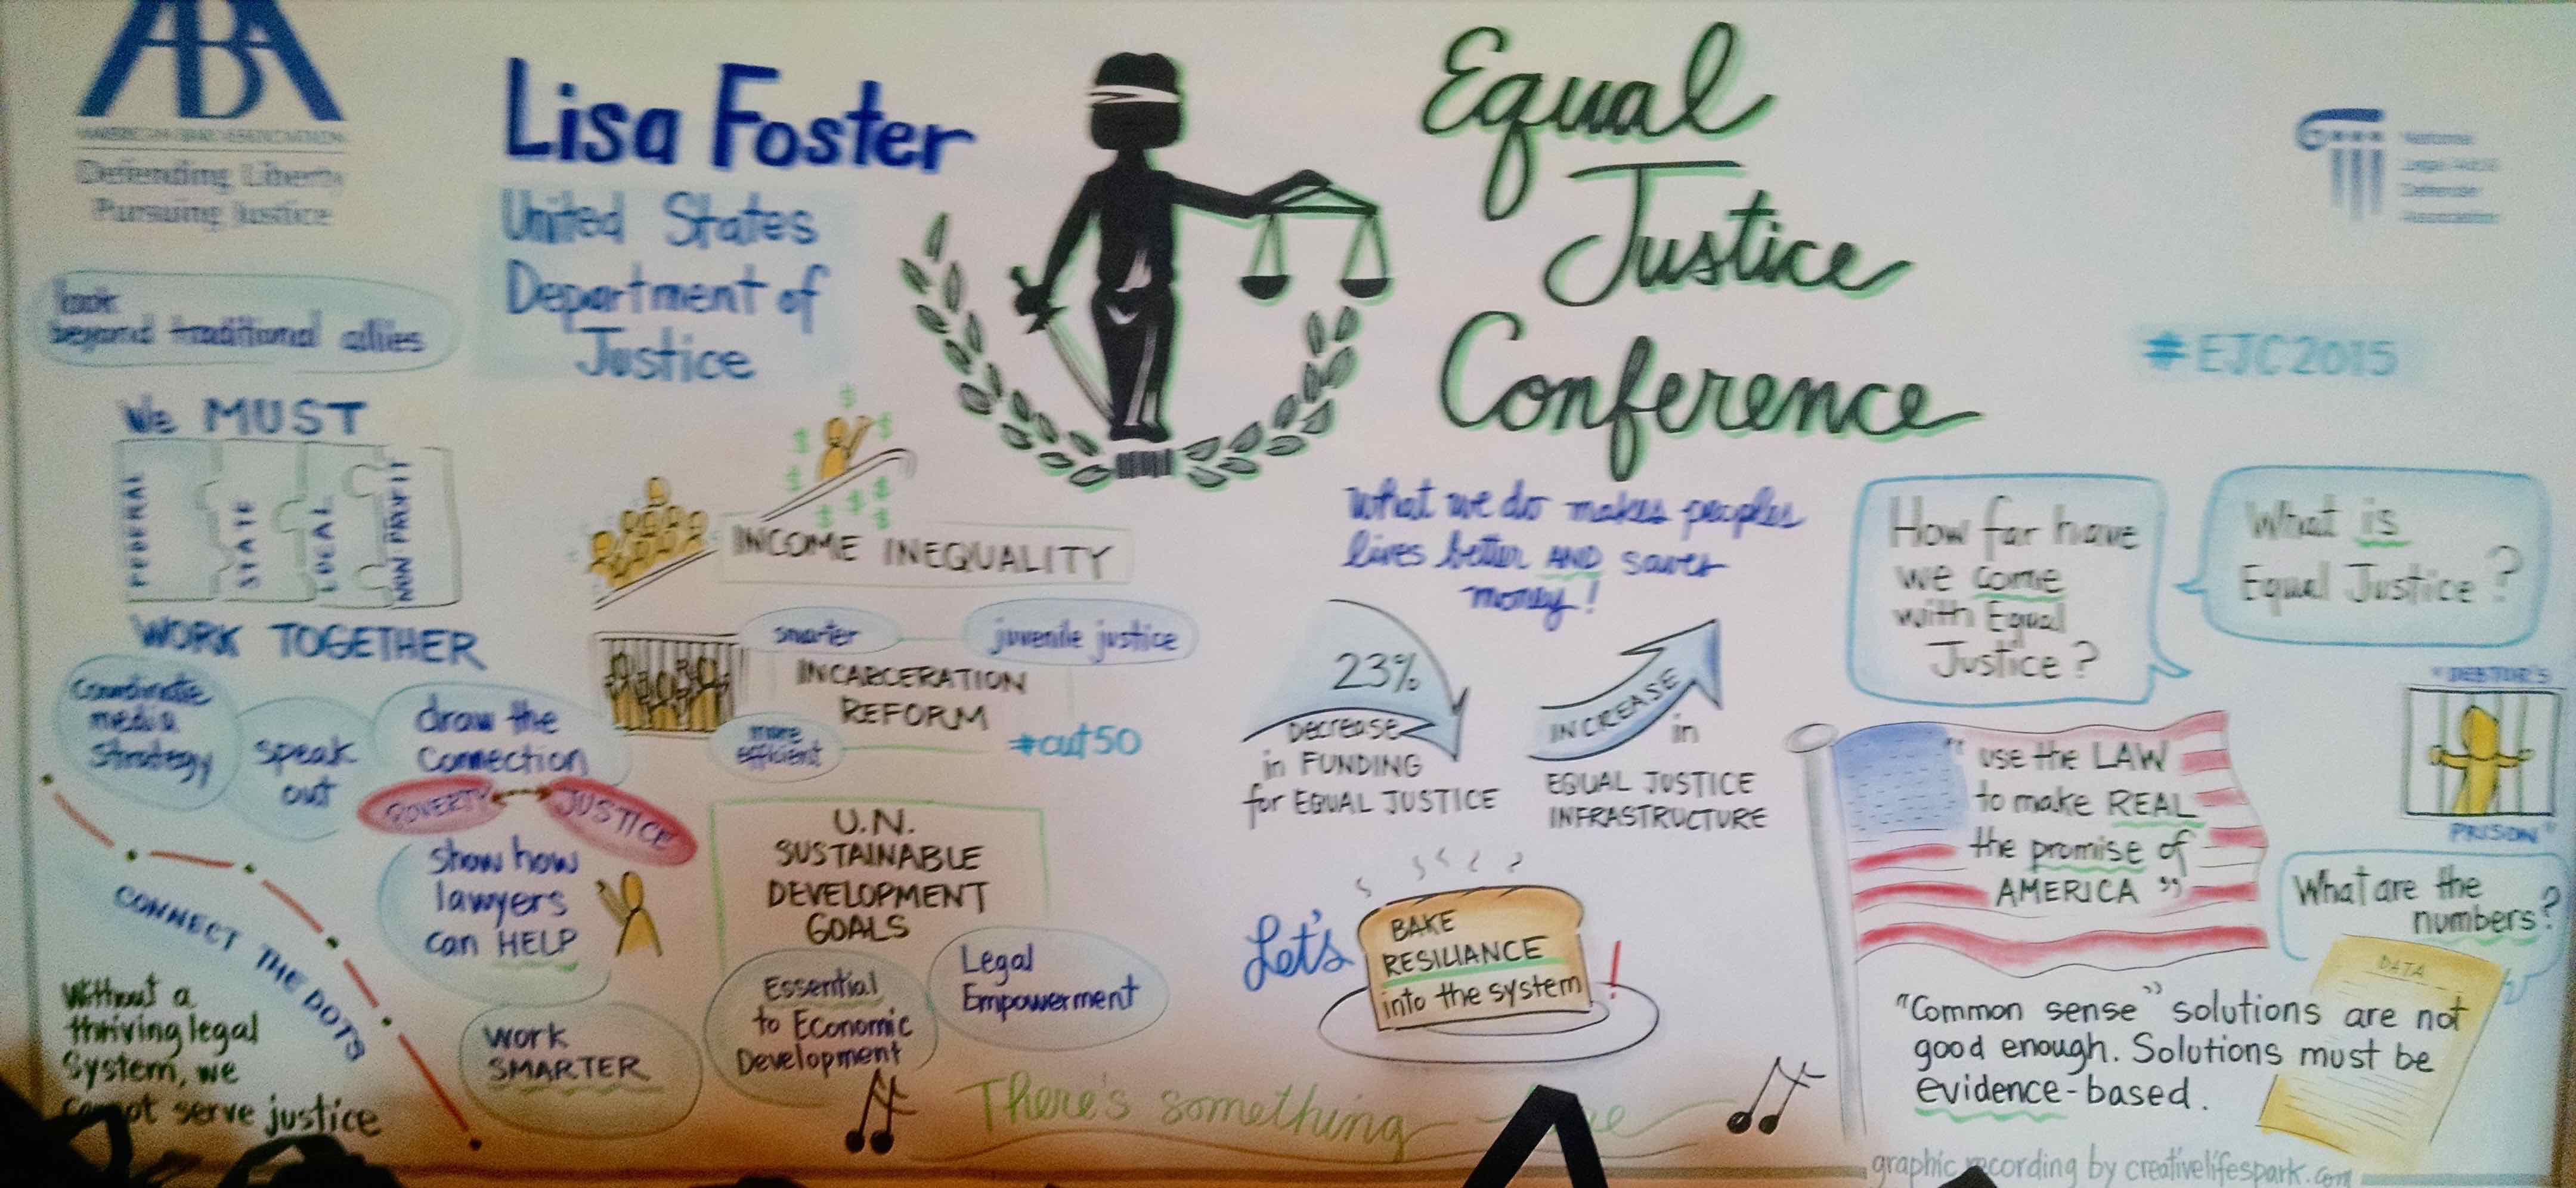 ABA
AMERICAN BAR ASSOCIATION
Defending Liberty
Pursuing Justice
Lisa Foster
United States
Department of
Justice
Equal
Justice
Conference
National
Legal Aid &
Defender
Association
#EJC2015
look
beyond traditional allies
We MUST
FEDERAL
STATE
LOCAL
NON PROFIT
WORK TOGETHER
coordinate
media
strategy
speak
out
draw the
connection
POVERTY
JUSTICE
show how
lawyers
can HELP
CONNECT THE DOTS
Without a
thriving legal
system, we
cannot serve justice
work
SMARTER
INCOME INEQUALITY
smarter
juvenile justice
INCARCERATION
REFORM
more
efficient
#cut50
U.N.
SUSTAINABLE
DEVELOPMENT
GOALS
Essential
to Economic
Development
Legal
Empowerment
What we do makes peoples
lives better AND saves
money!
23%
Decrease
in FUNDING
for EQUAL JUSTICE
INCREASE
in
EQUAL JUSTICE
INFRASTRUCTURE
Let's
BAKE
RESILIANCE
into the system
!
There's something
How far have
we come
with Equal
Justice?
What is
Equal Justice?
"DEBTOR'S
PRISON"
"use the LAW
to make REAL
the promise of
AMERICA"
What are the
numbers?
DATA
"Common sense" solutions are not
good enough. Solutions must be
evidence-based.
graphic recording by creativelifespark.com